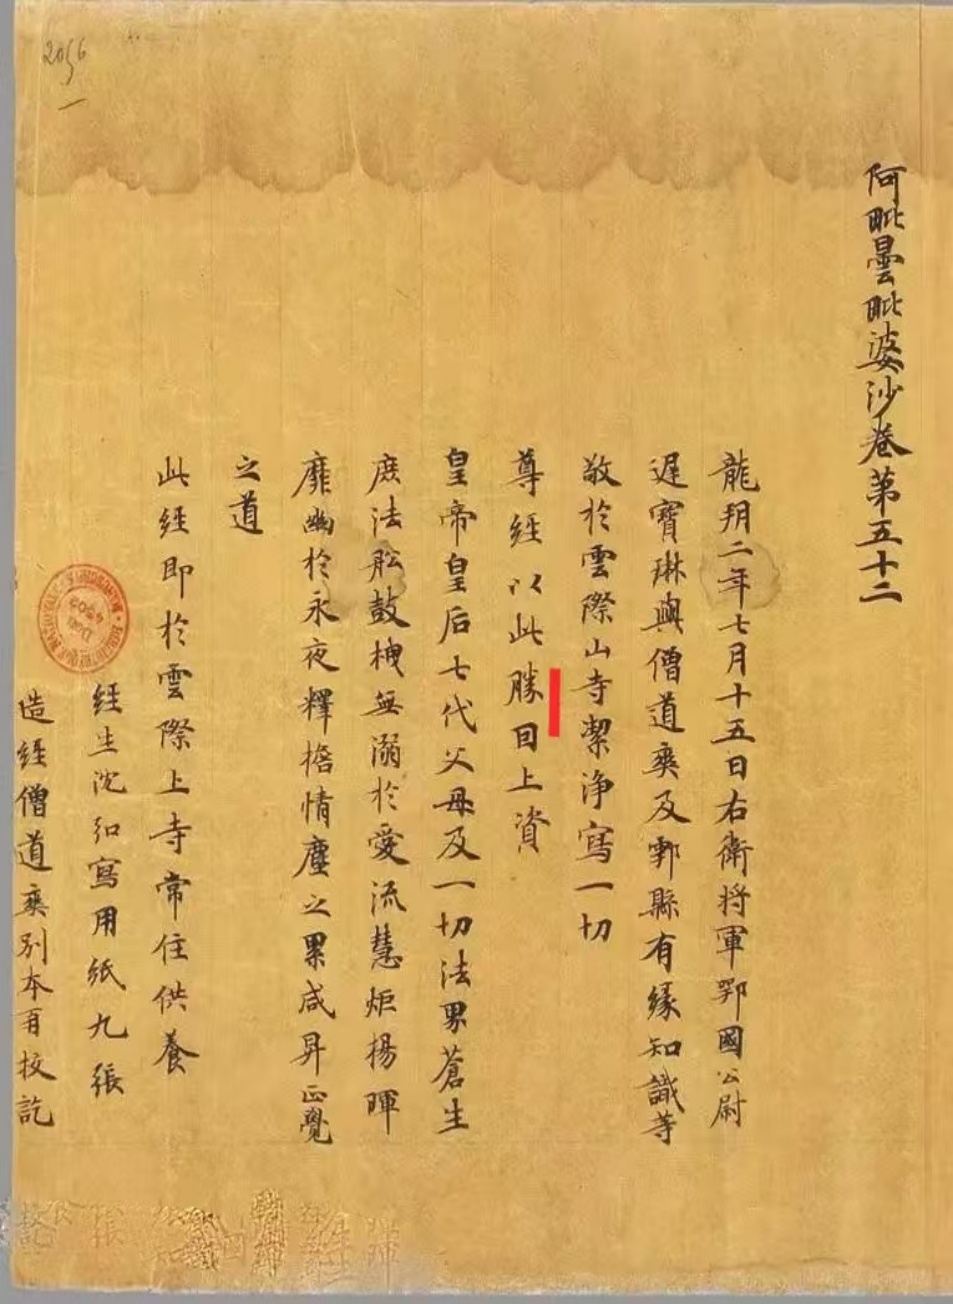 阿毗曇毗婆沙卷第五十二
龍朔二年七月十五日右衛將軍鄂國公尉
遲寶琳與僧道爽及鄠縣有緣知識等
敬於雲際山寺潔淨寫一切
尊經以此勝因上資
皇帝皇后七代父母及一切法界蒼生
庶法舩鼓栧無溺於愛流慧炬揚暉
靡幽於永夜釋擔情塵之累咸昇正覺
之道
此經即於雲際上寺常住供養
經生沈弘寫用紙九張
造經僧道爽別本再校訖
2056